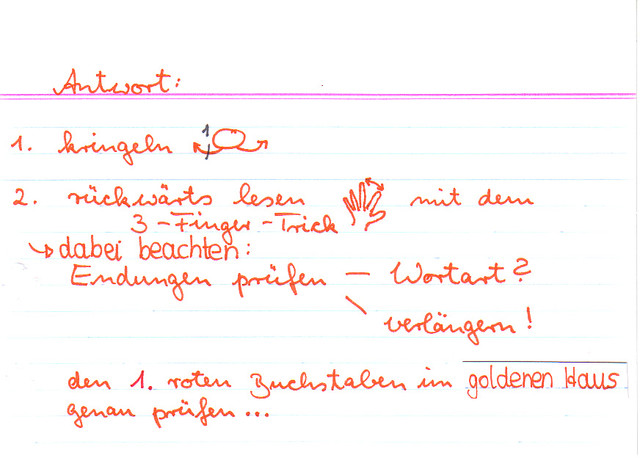 Antwort:
1. kringeln 1
2. rückwärts lesen mit dem
3-Finger-Trick
↳ dabei beachten:
Endungen prüfen – Wortart?
\ verlängern!
den 1. roten Buchstaben im goldenen Haus
genau prüfen...